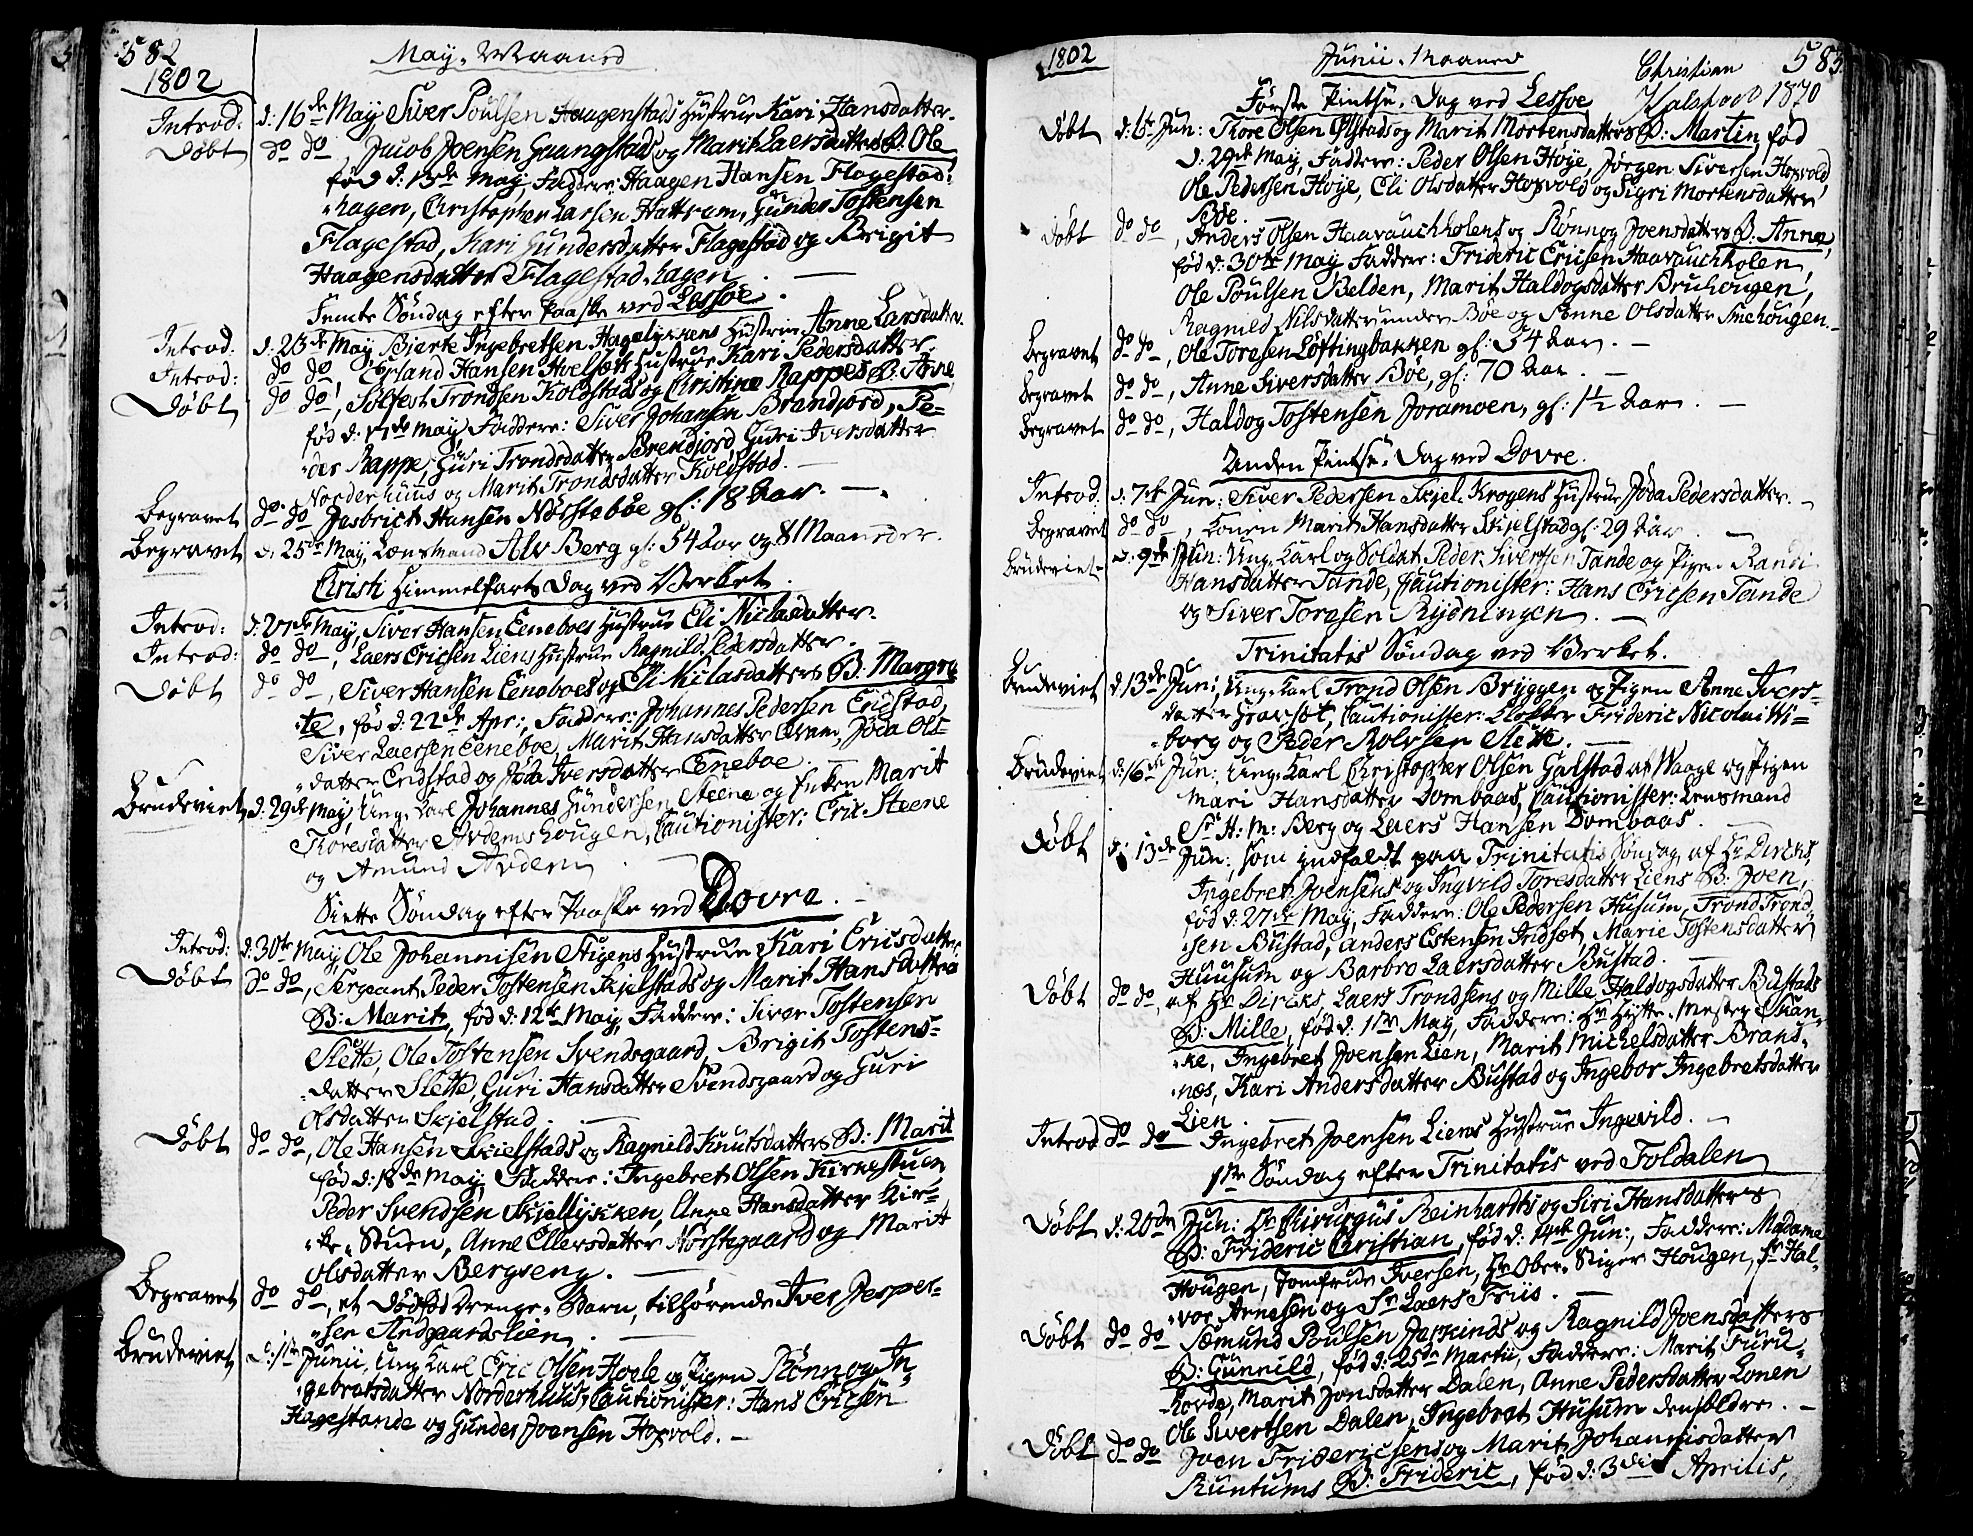 582
May Maaned
1802
Introd: d: 16de May, Siver Poulsen Haagenstads Hustrue Kari Hansdatter.
Døbt do do, Jacob Joensen Guangstads og Marit Laersdatters B: Ole
fød d: 13de May, Faddere: Haagen Hansen Flagestad-
hagen, Christopher Larsen Hattrem, Gunder Tostensen
Flagestad, Kari Gundersdatter Flagestad og Brigit
Haagensdatter Flagestadhagen.
Femte Søndag efter Paaske ved Lessøe.
Introd: d: 23de May, Bjerte Ingebretsen Hageløkkens Hustrue Anne Larsdatter.
Introd: do do Erland Hansen Hvelsets Hustrue Kari Pedersdatter
Døbt do do, Sølfest Trondsen Koldstads og Christine Rappes B: Ane
fød d: 17de May Faddere: Siver Johansen Brandjord, Pe-
der Rappe, Guri Trondsdatter Brendjord, Guri Iversdatter
Norderhuus og Marit Trondsdatter Koldstad.
Begravet do do Jesbrict Hansen Nørstebøe gl: 18 Aar.
Begravet d. 25de May, Lensmand Alv Berg gl: 54 Aar og 8 Maaneder.
Christi Himmelfarts Dag ved Verket.
Introd: d: 27de May, Siver Hansen Eeneboes Hustrue Eli Niclasdatter.
Introd: do do, Laers Ericsen Liens Hustrue Ragnild Pedersdatter.
Døbt do do, Siver Hansen Eeneboes og Eli Nilasdatters B: Margre-
te, fød d: 22de Apr:, Faddere: Johannes Pedersen Eridstad,
Siver Laersen Eeneboe, Marit Hansdatter, Joda Ols-
datter Eridstad og Joda Iversdatter Eeneboe.
Brudeviet d: 29de May, Ung Karl Johannes Gundersen Steene og Enken Marit
Thoresdatter Ardemshougen, Cautionister: Eric Steene
og Amund Ardem
Siette Søndag efter Paaske ved Dovre.
Introd: d: 30te May, Ole Johannisen Stigens Hustrue Kari Ericsdatter
Døbt do do, Sergeant Peder Tostensen Skjelstads og Marit Hansdatters
B: Marit, fød d: 12te May, Faddere: Siver Tostensen
Slette, Ole Tostensen Svendsgaard, Brigit Tostens-
datter Slette, Guri Hansdatter Svendsgaard og Guri
Olsdatter Skjelstad.
Døbt do do, Ole Hansen Skielstads og Ragnild Knutsdatters B: Marit
fød d: 18de May, Faddere: Ingebret Olsen Kirkestuen
Peder Svendsen Skielløkken, Anne Hansdatter Kir-
ke-Stuen, Anne Ellersdatter Nørstegaard og Marit
Olsdatter Bergseng.
Begravet do do, et Dødfød Drenge-Barn, tilhørende Iver Jesper-
sen Andgaardslien.
Brudeviet d: 1ste Junii, Ung Karl Eric Olsen Hoele og Pigen Rønnog In-
gebretsdatter Norderhuus, Cautionister: Hans Ericsen
Hagestande og Gunder Joensen Hopvold.
1802
Junii Maaned
583
Christian
Kalstad 1870
Første Pintse-Dag ved Lessøe
Døbt d: 6te Jun: Tore Olsen Ølstads og Marit Mortensdatters B: Martin, fød
d: 29de May, Faddere: Peder Olsen Høye, Jørgen Siversen Hopvold,
Ole Pedersen Høye, Eli Olsdatter Hopvold og Sigri Mortensdatter
Bøe.
Døbt do do, Anders Olsen Haavauchholens og Rønnog Joensdatters B: Anne,
fød d: 30te May Faddere: Frideric Ericsen Haavauchholen,
Ole Poulsen Belden, Marit Haldogsdatter Bruhougen,
Ragnild Nilsdatter under Bøe og Anne Olsdatter Smehougen.
Begravet do do, Ole Toresen Løftingbakken gl: 54 Aar.
Begravet do do, Anne Siversdatter Bøe, gl: 70 Aar.
Begravet do do, Haldog Tostensen Joramoen, gl: 1½ Aar.
Anden Pintse-Dag ved Dovre.
Introd. d: 7de Jun: Siver Pedersen Skjel-Krogens Hustrue Joda Pedersdatter.
Begravet do do, Konen Marit Hansdatter Skjelstad gl: 29 Aar.
Brudeviet d. 9de Jun: Ung-Karl og Soldat Peder Sivertsen Tande og Pigen Randi
Hansdatter Tande, Cautionister: Hans Ericsen Tande
og Siver Toresen Rydningen.
Trinitatis Søndag ved Verket.
Brudeviet d: 13de Jun: Ung-Karl Trond Olsen Bryggen og Pigen Anne Ivers-
datter Gravset, Cautionister: Klokker Frideric Nicolai Wi-
borg og Peder Rolvsen Slette.
Brudeviet d: 16de Jun: Ung-Karl Christopher Olsen Galstad af Waage og Pigen
Mari Hansdatter Dombaas, Cautionister: Lensmand
Sr H: M: Berg og Laers Hansen Dombaas.
Døbt d: 13de Jun: som indfaldt paa Trinitatis Søndag af Hr Dircks,
Ingebret Joensens og Ingvild Toresdatter Liens B: Joen,
fød d: 27de May, Faddere: Ole Pedersen Husum, Trond Trond-
sen Bustad, Anders Estensen Iridset, Marie Tostensdatter
Huusum og Barbro Laersdatter Bustad.
Døbt do do, af Hr Dircks, Laers Trondsens og Mille Haldogsdatter Bustads
B: Mille, fød d: 1ste May, Faddere: Hr Hytte-Mester Skan-
ke, Ingebret Joensen Lien, Marit Michelsdatter Brans-
nes, Kari Andersdatter Bustad og Ingebor Ingebretsdatter
Lien.
Introd do do Ingebret Joensen Liens Hustrue Ingevild.
1ste Søndag efter Trinitatis ved Foldalen
Døbt d: 20de Jun: Hr Chirurgus Reinhardts og Siri Hansdatters
B: Frideric Christian, fød d: 14de Jun:, Faddere: Madame
Hougen, Jomfrue Iversen, Hr Ober-Stiger Hougen, Sr Hal-
vor Arnesen og Sr Laers Friis.
Døbt do do Semund Poulsen Jarkinds og Ragnild Joensdatters
B: Gunnild, fød d: 25de Martii, Faddere: Marit Furu-
Marit Jonsdatter Dalen, Anne Pedersdatter Lonen
Ole Sivertsen Dalen, Ingebret Husum den eldre.
Døbt do do Joen Fridericsens og Marit Johannisdatter
Runtums B: Frideric, fød d: 3die Aprilis,